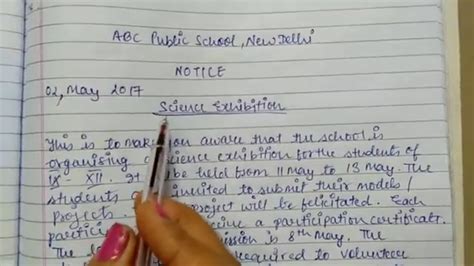 ABC Public School, New Delhi
NOTICE
02, May 2017
Science Exhibition
This is to make you aware that the school is
organising a science exhibition for the students of
IX - XII. It be held from 11 May to 13 May. The
students are invited to submit their models /
projects. project will be felicitated. Each
particip receive a participation certificate.
The la mission is 8th May. The
required to volunteer